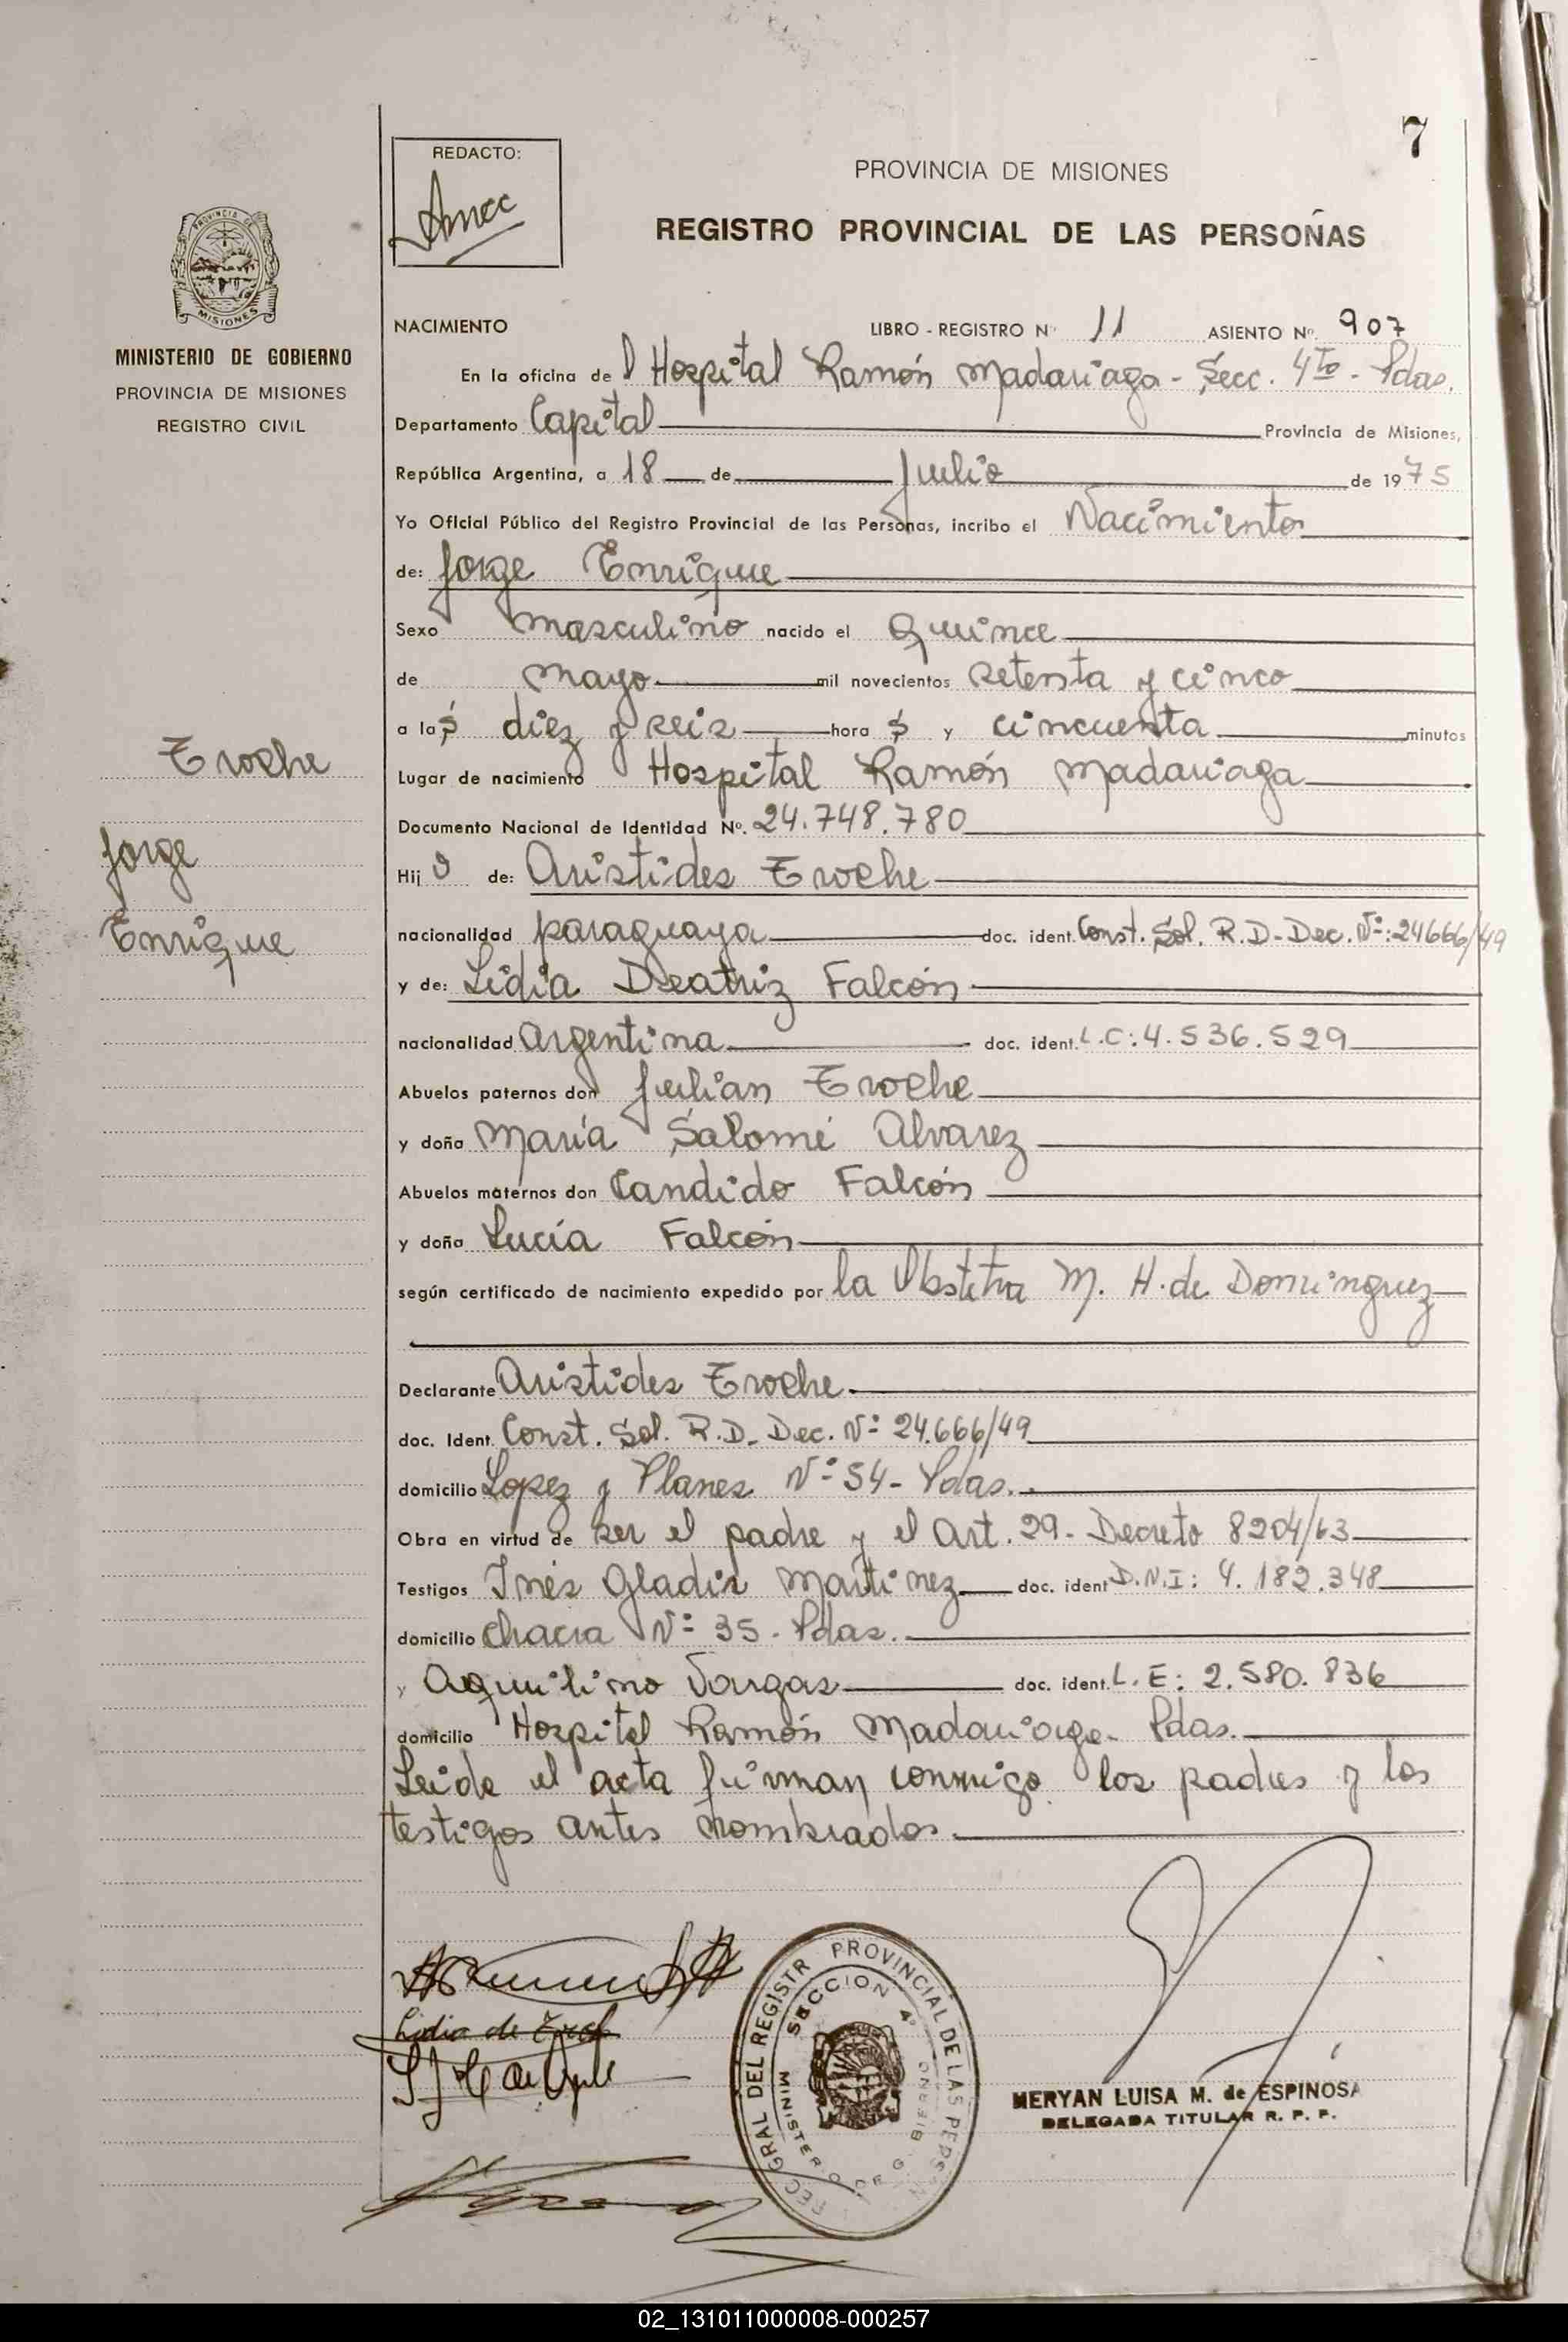 7
REDACTO:
PROVINCIA DE MISIONES
REGISTRO PROVINCIAL DE LAS PERSONAS
PROVINCIA DE
MISIONES
MINISTERIO DE GOBIERNO
PROVINCIA DE MISIONES
REGISTRO CIVIL
NACIMIENTO LIBRO - REGISTRO Nº 11 ASIENTO Nº 907
En la oficina de l Hospital Ramón Madariaga - Secc. 4ta - Pdas.
Departamento Capital Provincia de Misiones,
República Argentina, a 18 de Julio de 1975
Yo Oficial Público del Registro Provincial de las Personas, incribo el Nacimiento
de: Jorge Enrique
Sexo masculino nacido el Quince
de Mayo mil novecientos setenta y cinco
a las diez y seis horas y cincuenta minutos
Troche
Lugar de nacimiento Hospital Ramón Madariaga
Documento Nacional de Identidad Nº. 24.748.780
Jorge
Hij o de: Aristides Troche
Enrique
nacionalidad paraguaya doc. ident. Const. Sol. R.D-Dec. Nº: 24666/49
y de: Lidia Beatriz Falcón
nacionalidad Argentina doc. ident. L.C: 4.536.529
Abuelos paternos don Julian Troche
y doña María Salomé Alvarez
Abuelos maternos don Candido Falcón
y doña Lucía Falcón
según certificado de nacimiento expedido por la Obstetra M. H. de Dominguez
Declarante Aristides Troche
doc. Ident. Const. Sol. R.D. Dec. Nº 24.666/49
domicilio Lopez y Planes Nº 54 - Pdas.
Obra en virtud de ser el padre y el Art. 29 - Decreto 8204/63
Testigos Inés Gladis Martinez doc. ident D.N.I: 4.182.348
domicilio Chacra Nº 35 - Pdas.
y Aquilino Vargas doc. ident. L.E: 2.580.836
domicilio Hospital Ramón Madariaga - Pdas.
Leida el acta firman conmigo los padres y los
testigos antes nombrados.
Lidia de
PROVINCIAL DE LAS PERSON
GRAL DEL REGISTR
SECCION 4º
MINISTERIO DE GOBIERNO
MERYAN LUISA M. de ESPINOSA
DELEGADA TITULAR R. P. P.
02_131011000008-000257